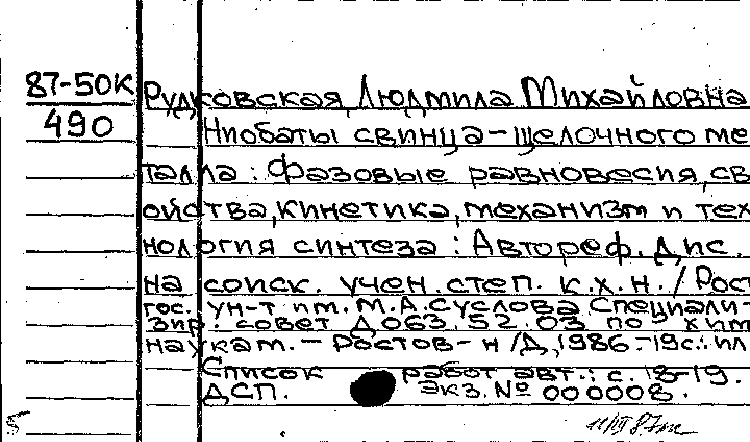 87-50к
490
Рудковская Людмила Михайловна
Ниобаты свинца-щелочного ме
талла: Фазовые равновесия, св
ойства, кинетика, механизм и тех
нология синтеза: Автореф. дис.
на соиск. учен. степ. к.х.н. / Рост
гос. ун-т им. М.А. Суслова. Специали-
зир. совет Д 063.52.03 по хим
наукам. - Ростов-н/Д, 1986.-19с.: ил
Список работ авт.: с. 18-19.
ДСП. Экз. № 000008.
5